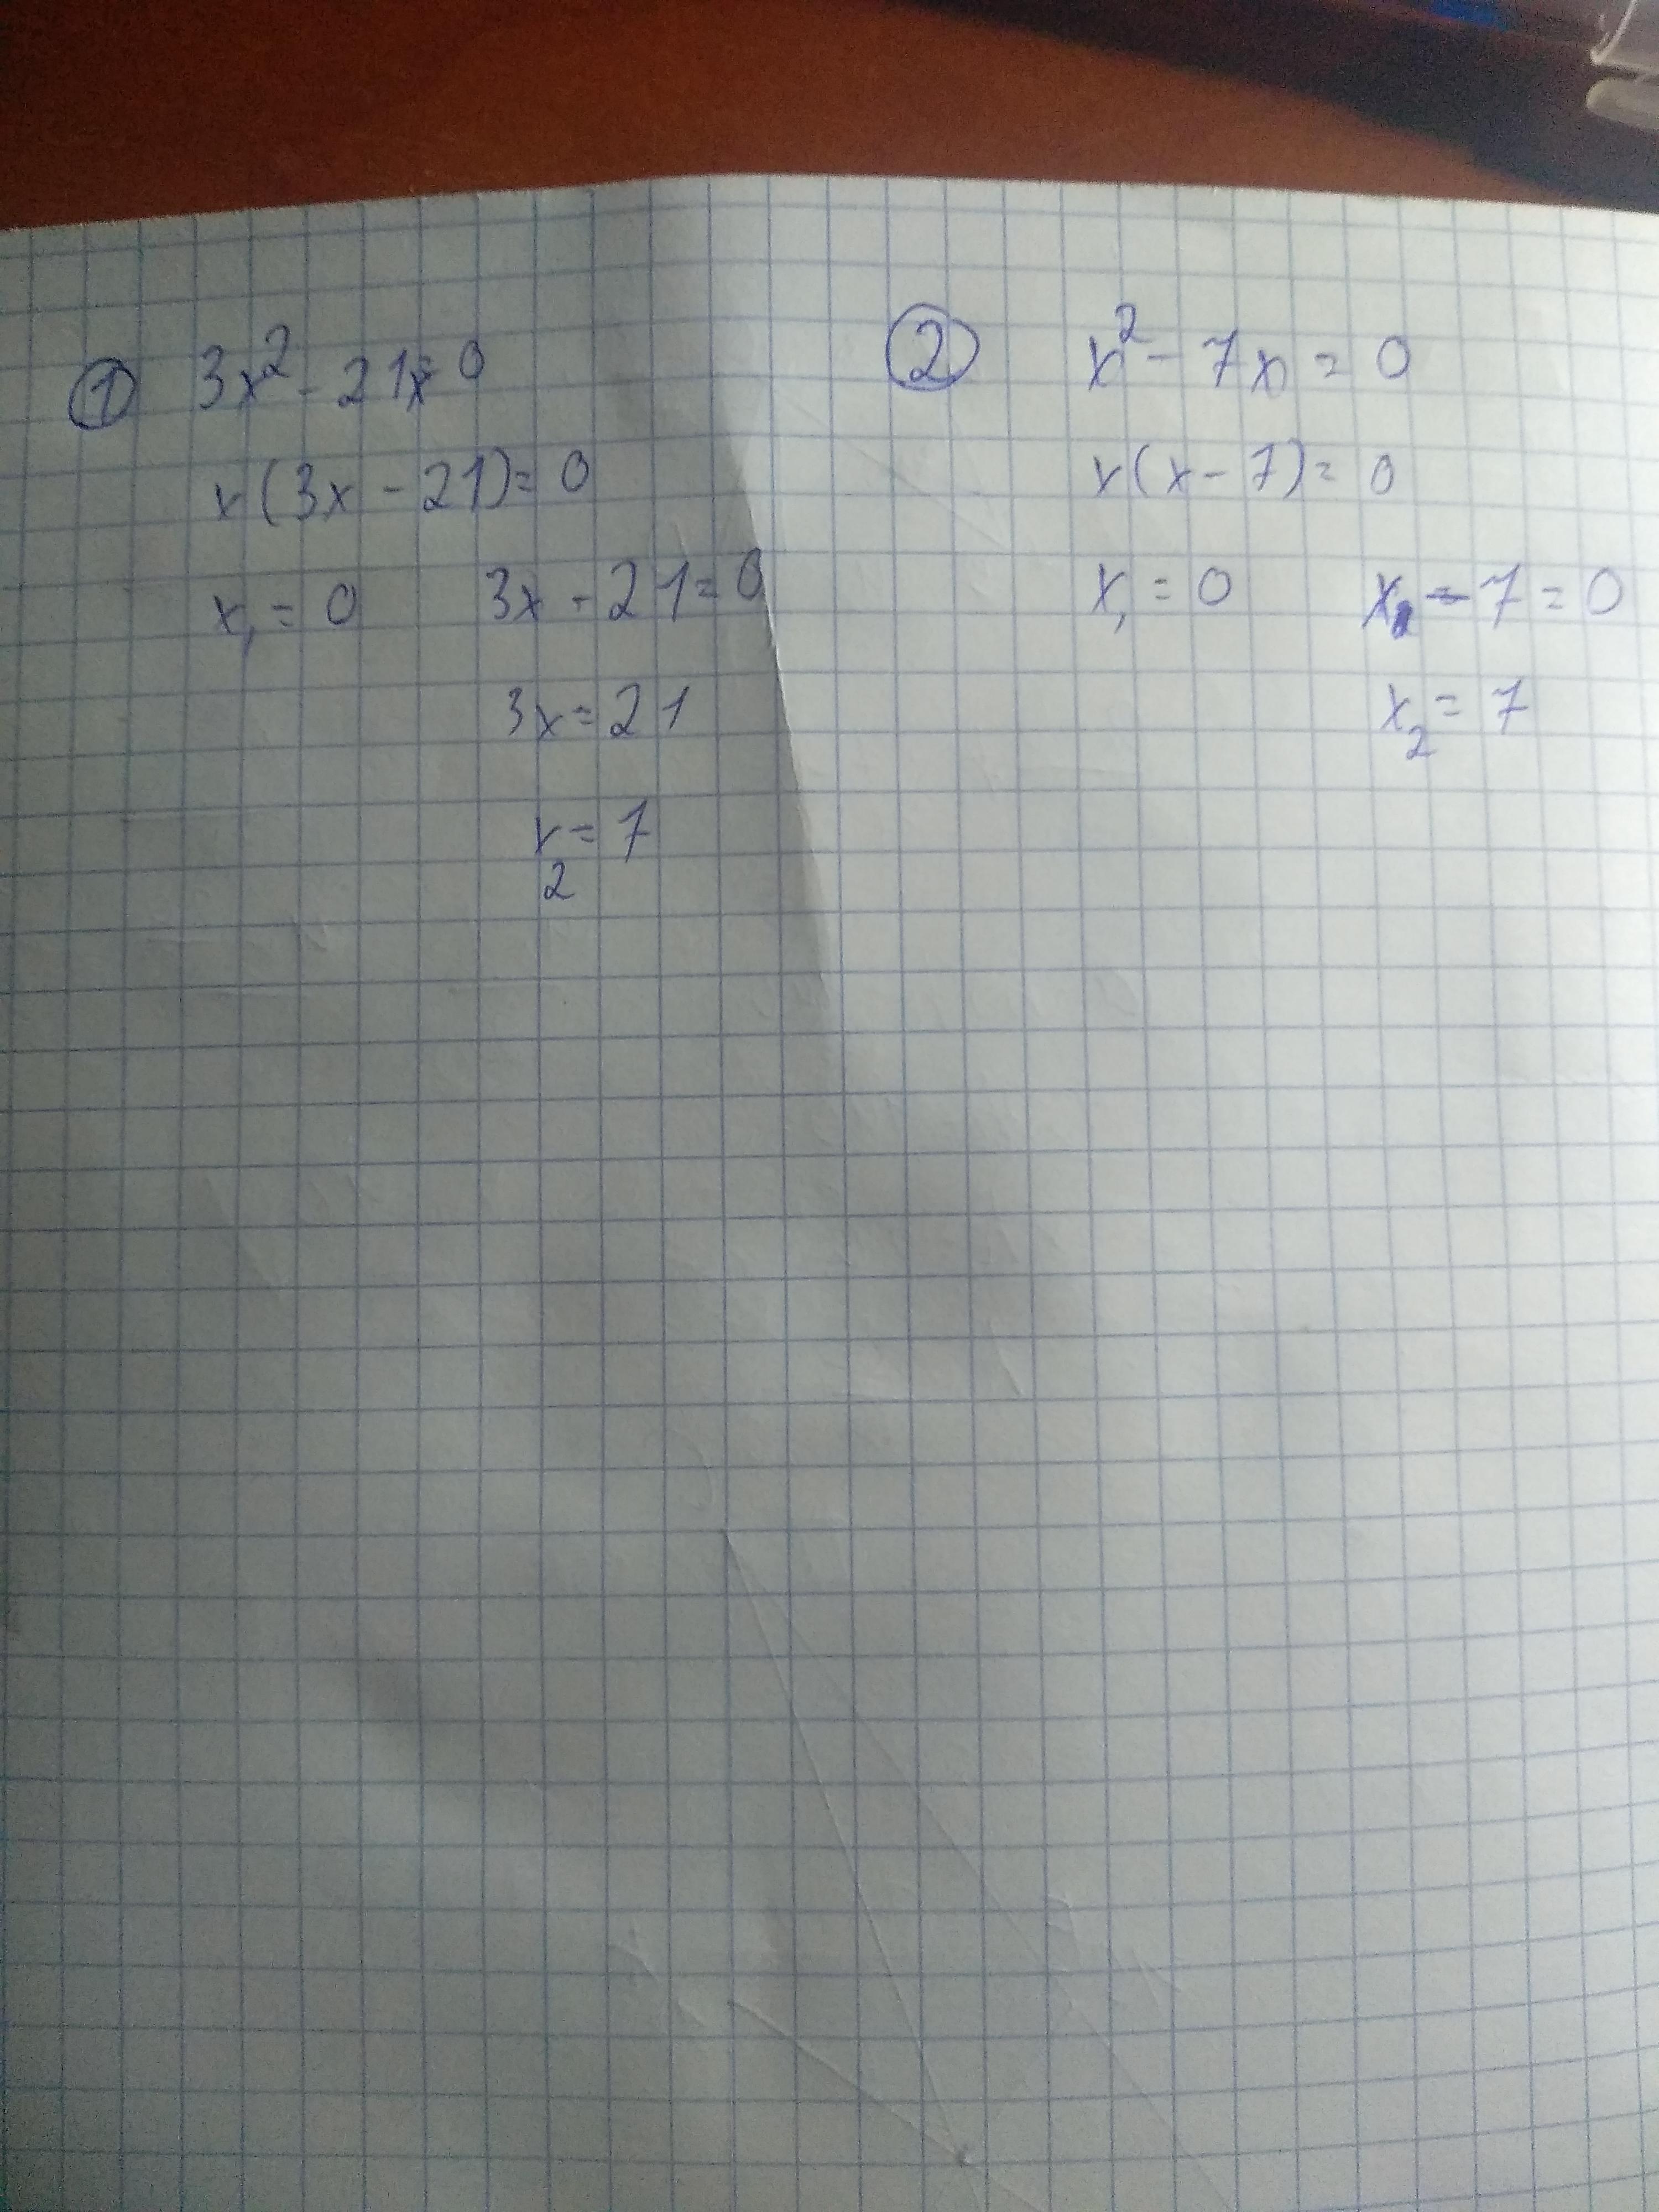 ① 3x² - 21x = 0
x(3x - 21) = 0
x₁ = 0 3x - 21 = 0
3x = 21
x₂ = 7
② x² - 7x = 0
x(x - 7) = 0
x₁ = 0 x - 7 = 0
x₂ = 7